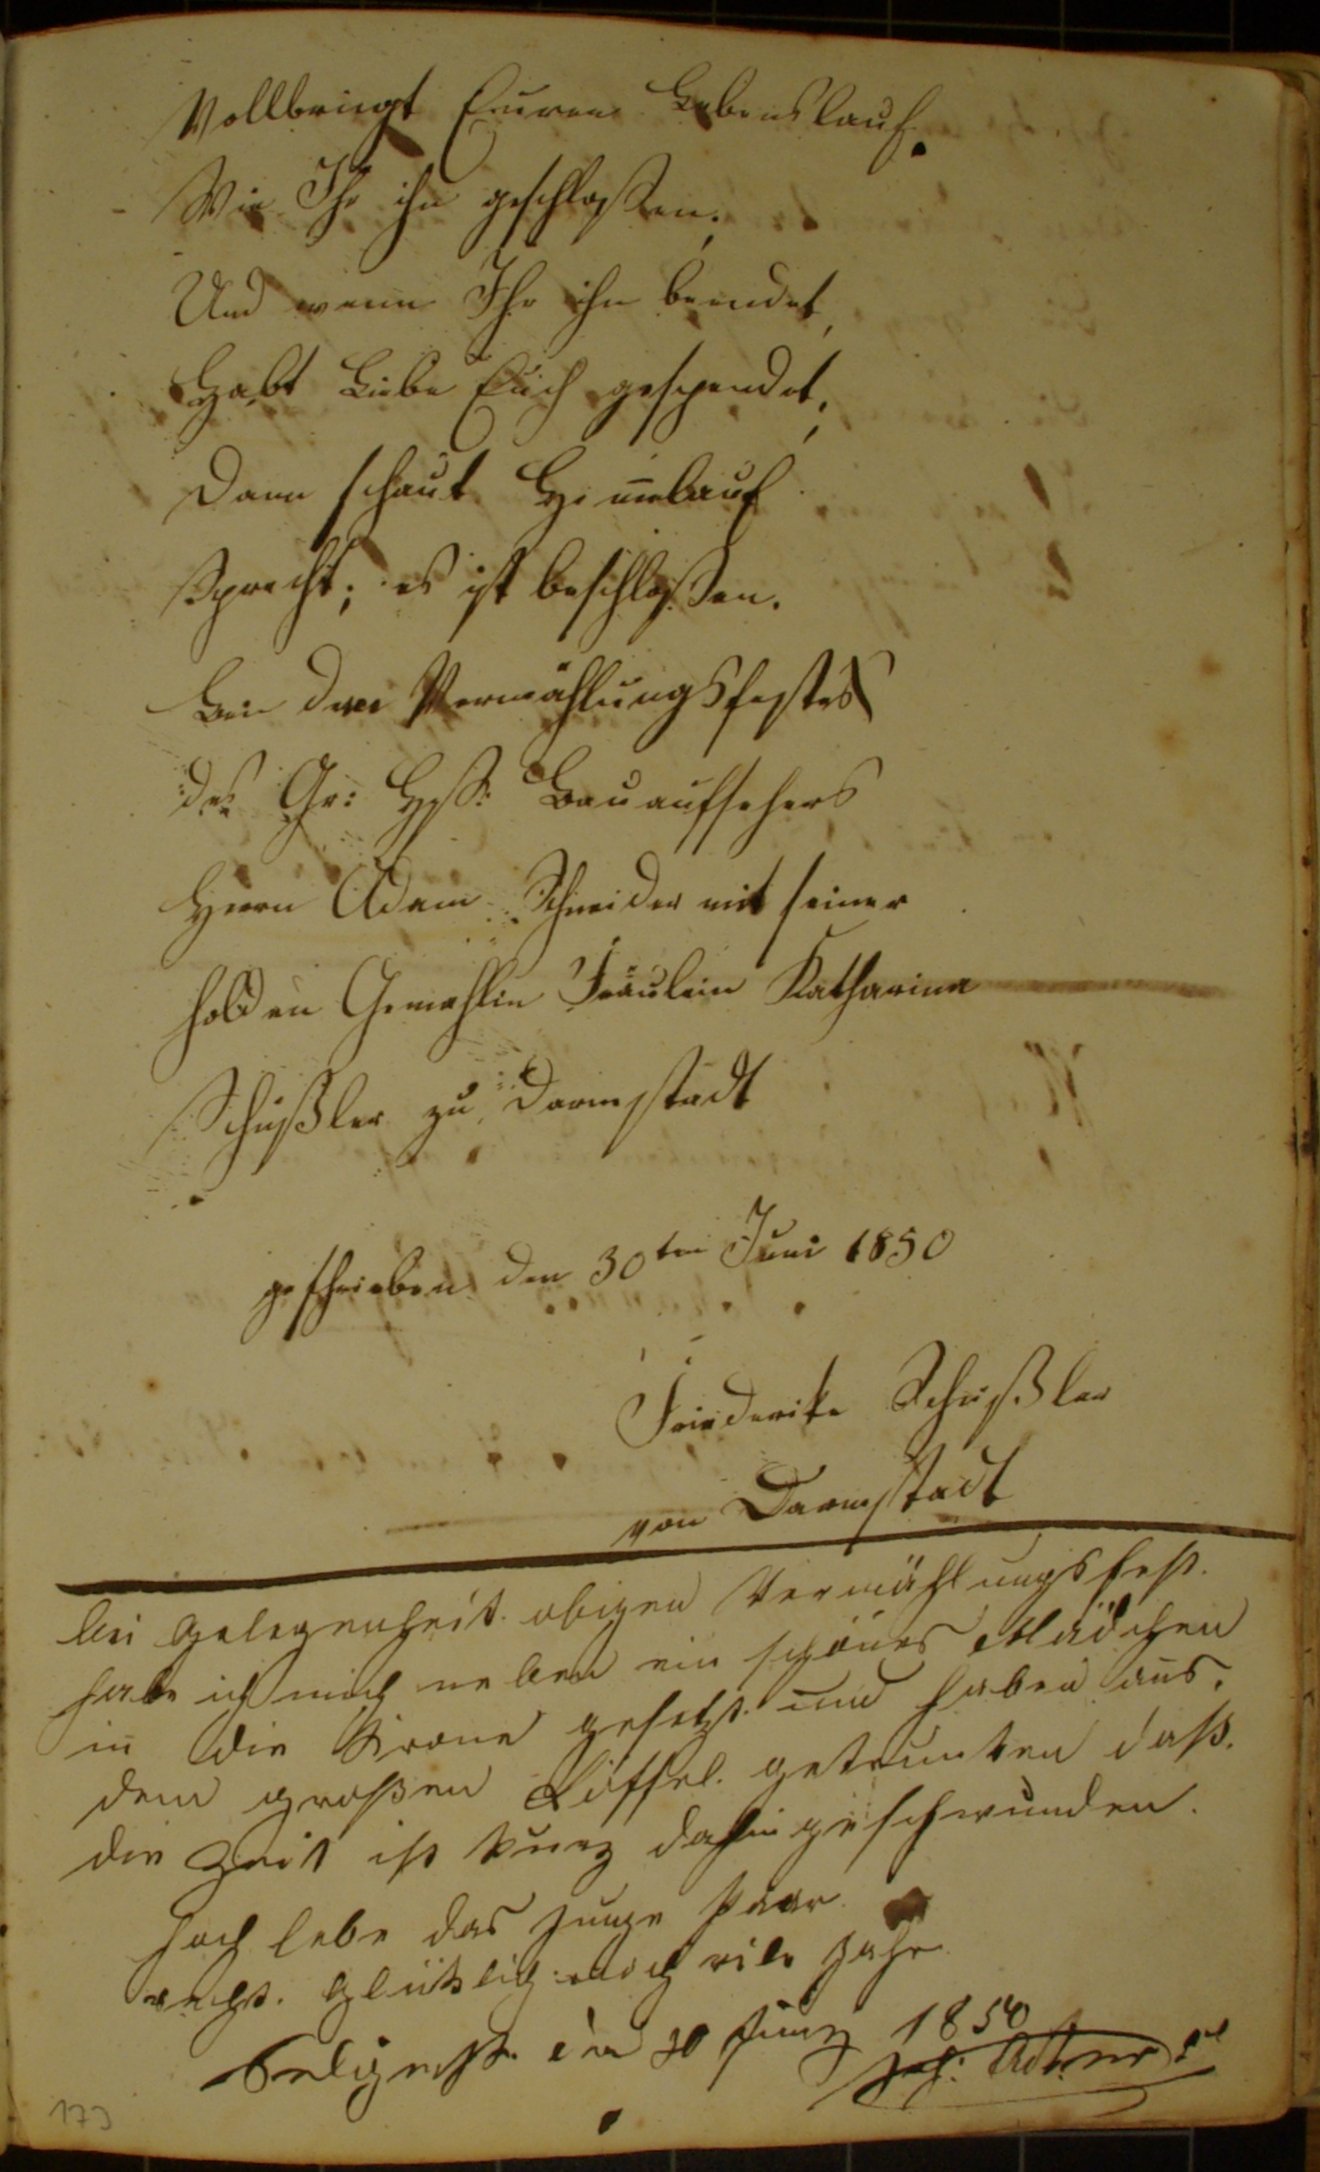 Vollbringt Euren Lebenslauf,
Wie Ihr ihn geschloßen,
Und wenn Ihr ihn beendet,
Habt Liebe Euch gespendet,
Dann schaut Himelauf
Sprecht; es ist beschloßen.
Bei dem Vermählungsfestes
des Gr: Heß: Bauaufsehers
Herrn Adam Schneider mit seiner
holden Gemahlin Fräulein Katharina
Schüßler zu Darmstadt
geschrieben den 30ten Juni 1850
Friederike Schüßler
von Darmstadt
bei Gelegenheit obigen Vermählungsfest
habe ich mich neben ein schönes Mädchen
in die Krone gesetzt und haben aus
dem großen Löffel getrunken daß
die Zeit ist kurz dahin geschwunden.
Hoch lebe das junge Paar
recht glücklich noch vile Jahr
Seligenst. den 30 Juny 1850
173